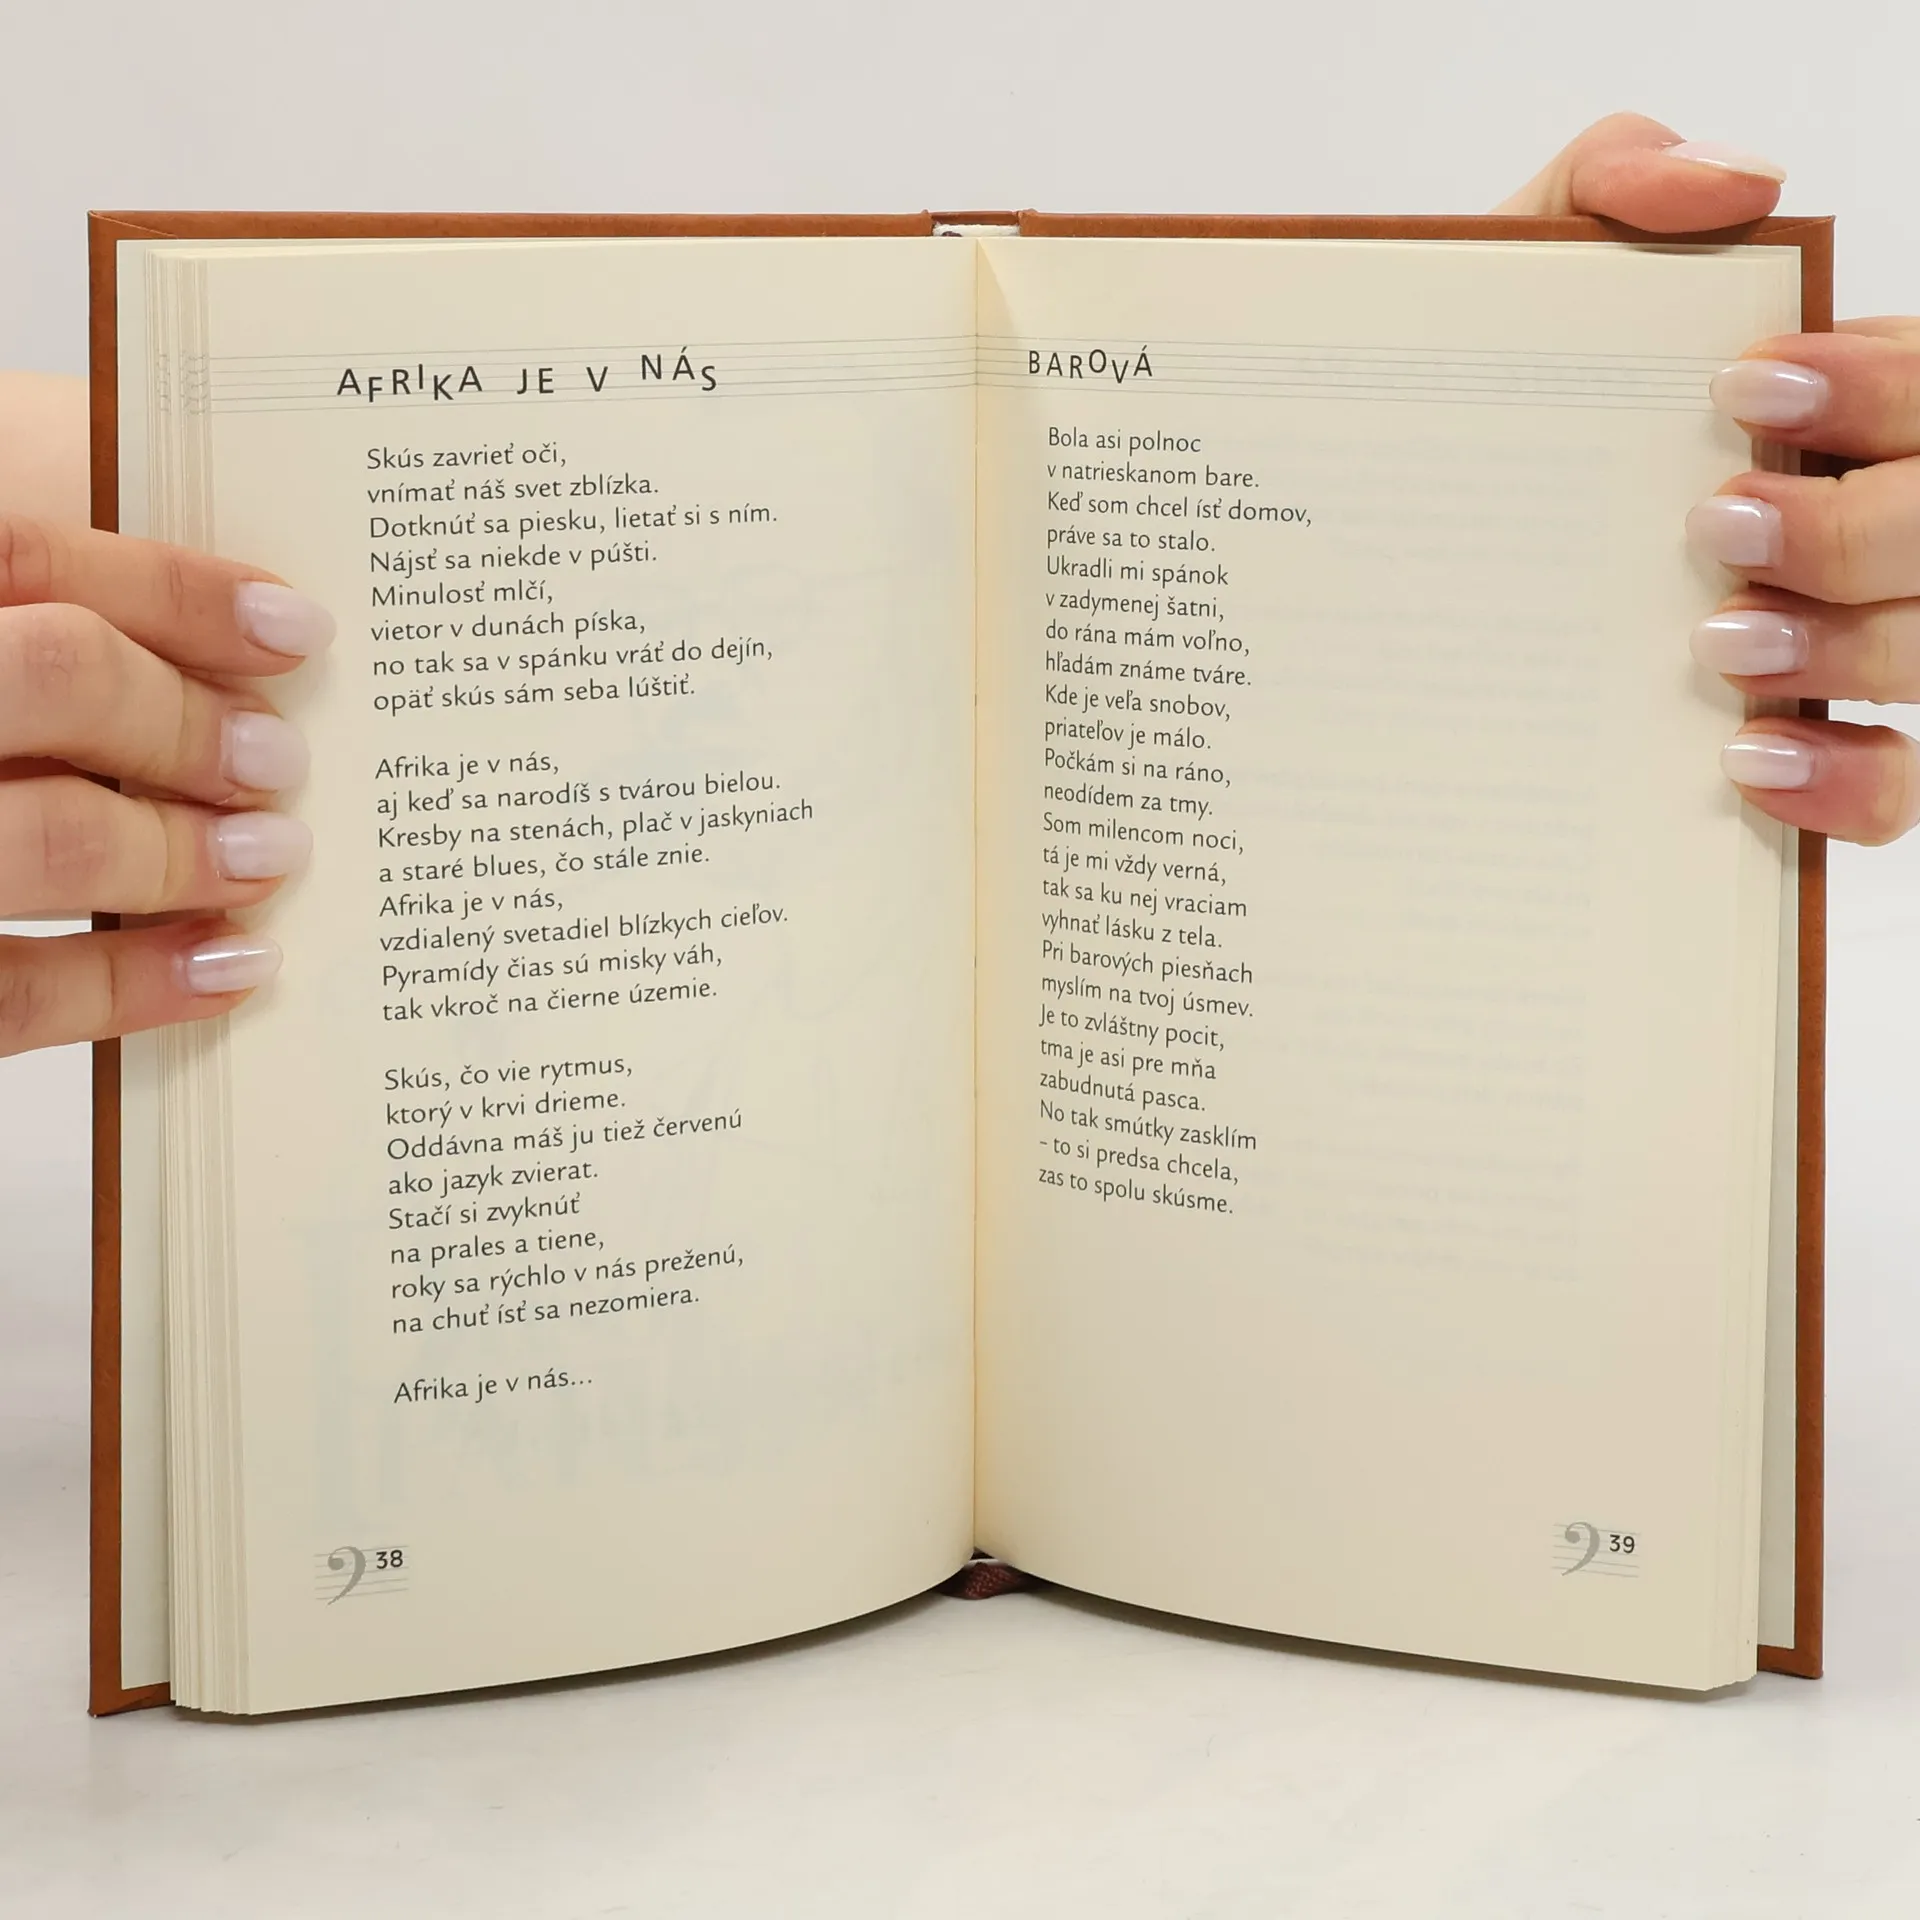 AFRIKA JE V NÁS
Skús zavrieť oči,
vnímať náš svet zblízka.
Dotknúť sa piesku, lietať si s ním.
Nájsť sa niekde v púšti.
Minulosť mlčí,
vietor v dunách píska,
no tak sa v spánku vráť do dejín,
opäť skús sám seba lúštiť.
Afrika je v nás,
aj keď sa narodíš s tvárou bielou.
Kresby na stenách, plač v jaskyniach
a staré blues, čo stále znie.
Afrika je v nás,
vzdialený svetadiel blízkych cieľov.
Pyramídy čias sú misky váh,
tak vkroč na čierne územie.
Skús, čo vie rytmus,
ktorý v krvi drieme.
Oddávna máš ju tiež červenú
ako jazyk zvierat.
Stačí si zvyknúť
na prales a tiene,
roky sa rýchlo v nás preženú,
na chuť ísť sa nezomiera.
Afrika je v nás...
38
BAROVÁ
Bola asi polnoc
v natrieskanom bare.
Keď som chcel ísť domov,
práve sa to stalo.
Ukradli mi spánok
v zadymenej šatni,
do rána mám voľno,
hľadám známe tváre.
Kde je veľa snobov,
priateľov je málo.
Počkám si na ráno,
neodídem za tmy.
Som milencom noci,
tá je mi vždy verná,
tak sa ku nej vraciam
vyhnať lásku z tela.
Pri barových piesňach
myslím na tvoj úsmev.
Je to zvláštny pocit,
tma je asi pre mňa
zabudnutá pasca.
No tak smútky zasklím
– to si predsa chcela,
zas to spolu skúsme.
39